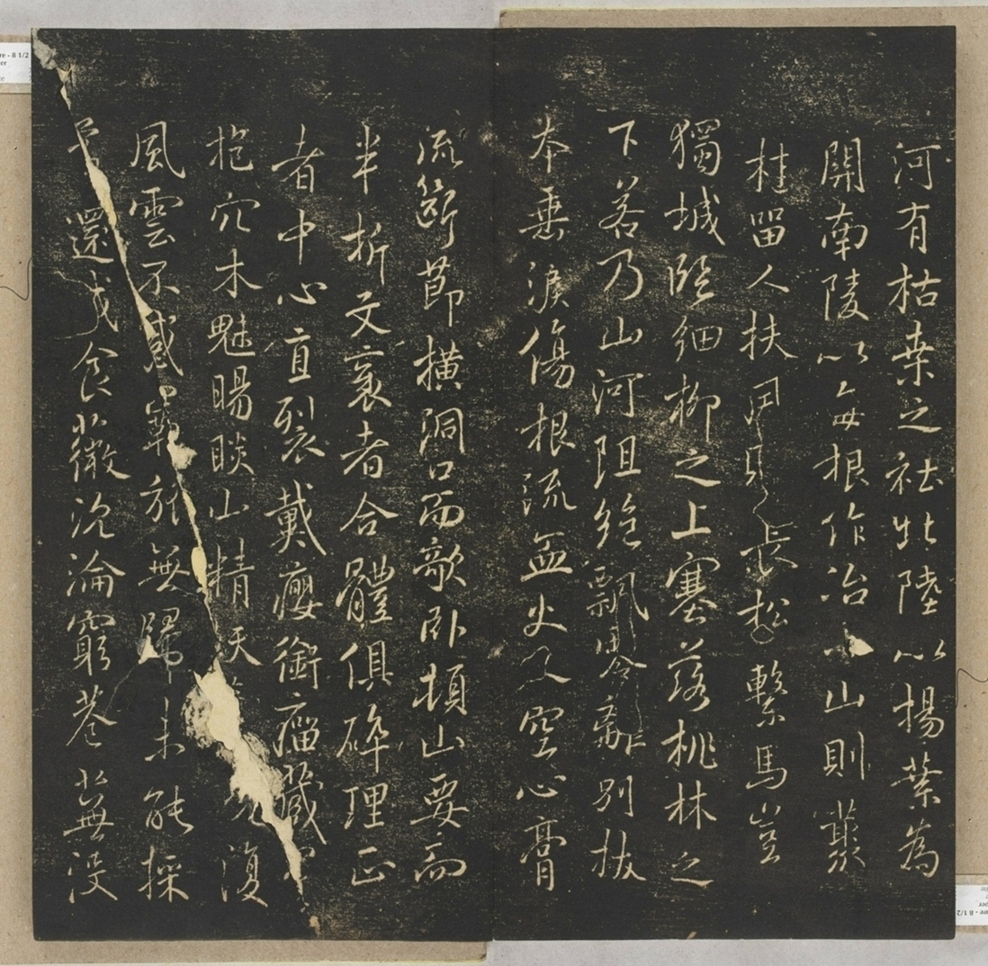 河有枯桒之社北陸以揚葉為
開南陵以每根作冶小山則叢
桂留人扶風長松繫馬豈
獨城臨細柳之上塞落桃林之
下若乃山河阻絶飄零離別拔
本垂淚傷根流血火入空心膏
流斷節橫洞口而敧卧頓山要而
半折文衺者合體俱碎理正
者中心直裂戴癭銜瘤藏
抱穴木魅睗睒山精妖復
風雲不感羈旅無歸未能採
葛還成食薇沉淪窮巷蕪沒